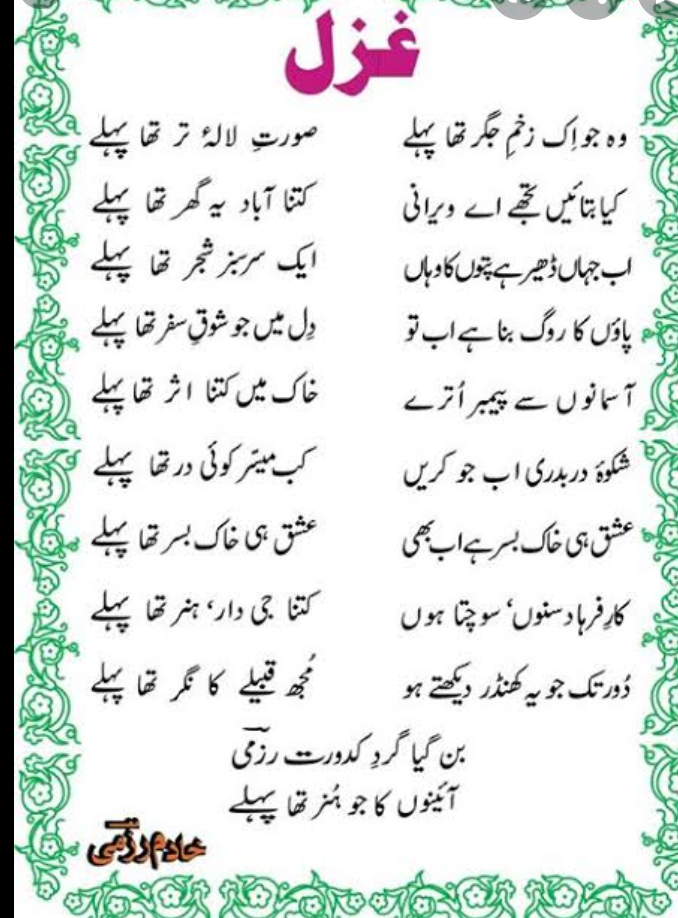 غزل
وہ جو اِک زخمِ جگر تھا پہلے صورتِ لالۂ تر تھا پہلے
کیا بتائیں تجھے اے ویرانی کتنا آباد یہ گھر تھا پہلے
اب جہاں ڈھیر ہے پتوں کا وہاں ایک سرسبز شجر تھا پہلے
پاؤں کا روگ بنا ہے اب تو دِل میں جو شوقِ سفر تھا پہلے
آسمانوں سے پیمبر اُترے خاک میں کتنا اثر تھا پہلے
شکوۂ دربدری اب جو کریں کب میسّر کوئی در تھا پہلے
عشق ہی خاک بسر ہے اب بھی عشق ہی خاک بسر تھا پہلے
کارِ فرہاد سنوں، سوچتا ہوں کتنا جی دار، ہنر تھا پہلے
دُور تک جو یہ کھنڈر دیکھتے ہو مُجھ قبیلے کا نگر تھا پہلے
بن گیا گردِ کدورت رزمیؔ
آئینوں کا جو ہُنر تھا پہلے
خادم رزمیؔ